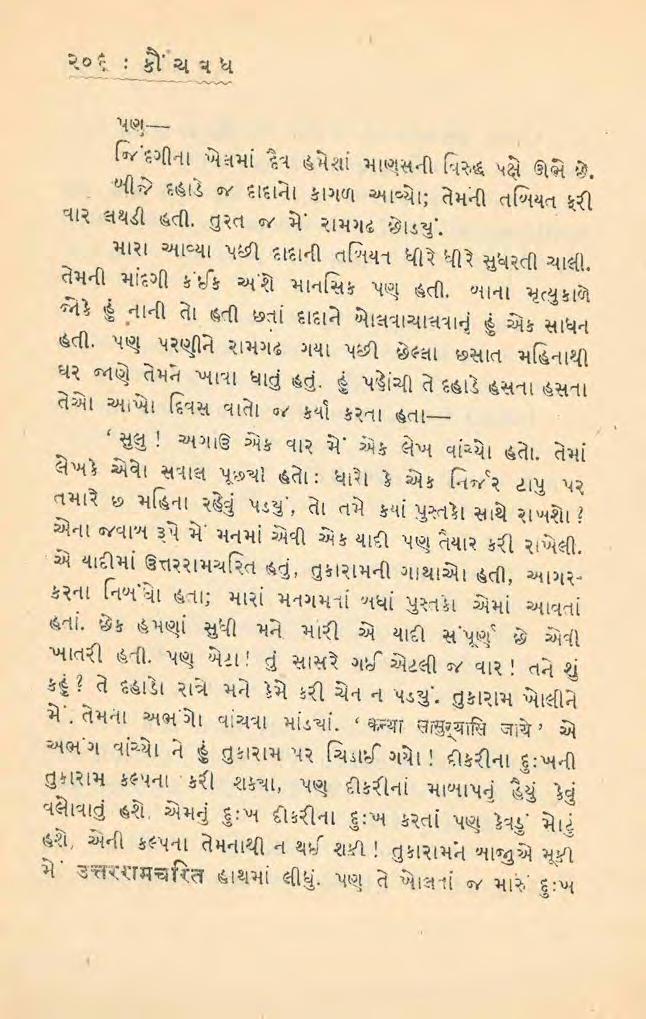 ૨૦૬ : ક્રૌંચવધ
પણ—
જિંદગીના ખેલમાં દૈવ હમેશાં માણસની વિરુદ્ધ પક્ષે ઊભે છે.
બીજે દહાડે જ દાદાનો કાગળ આવ્યો; તેમની તબિયત ફરી
વાર લથડી હતી. તુરત જ મેં રામગઢ છોડયું.
મારા આવ્યા પછી દાદાની તબિયત ધીરે ધીરે સુધરતી ચાલી.
તેમની માંદગી કંઈક અંશે માનસિક પણ હતી. બાના મૃત્યુકાળે
જોકે હું નાની તો હતી છતાં દાદાને બોલવાચાલવાનું હું એક સાધન
હતી. પણ પરણીને રામગઢ ગયા પછી છેલ્લા છસાત મહિનાથી
ઘર જાણે તેમને ખાવા ધાતું હતું. હું પહોંચી તે દહાડે હસતા હસતા
તેઓ આખો દિવસ વાતો જ કર્યા કરતા હતા—
‘સુલુ ! અગાઉ એક વાર મેં એક લેખ વાંચ્યો હતો. તેમાં
લેખકે એવો સવાલ પૂછ્યો હતો: ધારો કે એક નિર્જર ટાપુ પર
તમારે છ મહિના રહેવું પડયું, તો તમે કયાં પુસ્તકો સાથે રાખશો ?
એના જવાબ રૂપે મેં મનમાં એવી એક યાદી પણ તૈયાર કરી રાખેલી.
એ યાદીમાં ઉત્તરરામચરિત હતું, તુકારામની ગાથાઓ હતી, આગર-
કરના નિબંધો હતા; મારાં મનગમતાં બધાં પુસ્તકો એમાં આવતાં
હતાં. છેક હમણાં સુધી મને મારી એ યાદી સંપૂર્ણ છે એવી
ખાતરી હતી. પણ બેટા ! તું સાસરે ગઈ એટલી જ વાર ! તને શું
કહું ? તે દહાડો રાત્રે મને કેમે કરી ચેન ન પડયું. તુકારામ ખોલીને
મેં તેમના અભંગો વાંચવા માંડયાં. ‘कन्या सासुर्‍यासि जाये’ એ
અભંગ વાંચ્યો ને હું તુકારામ પર ચિડાઈ ગયો ! દીકરીના દુઃખની
તુકારામ કલ્પના કરી શકયા, પણ દીકરીનાં માબાપનું હૈયું કેવું
વલોવાતું હશે, એમનું દુઃખ દીકરીના દુઃખ કરતાં પણ કેવડું મોટું
હશે, એની કલ્પના તેમનાથી ન થઈ શકી ! તુકારામને બાજુએ મૂકી
મેં उत्तररामचरित હાથમાં લીધું. પણ તે ખોલતાં જ મારું દુઃખ